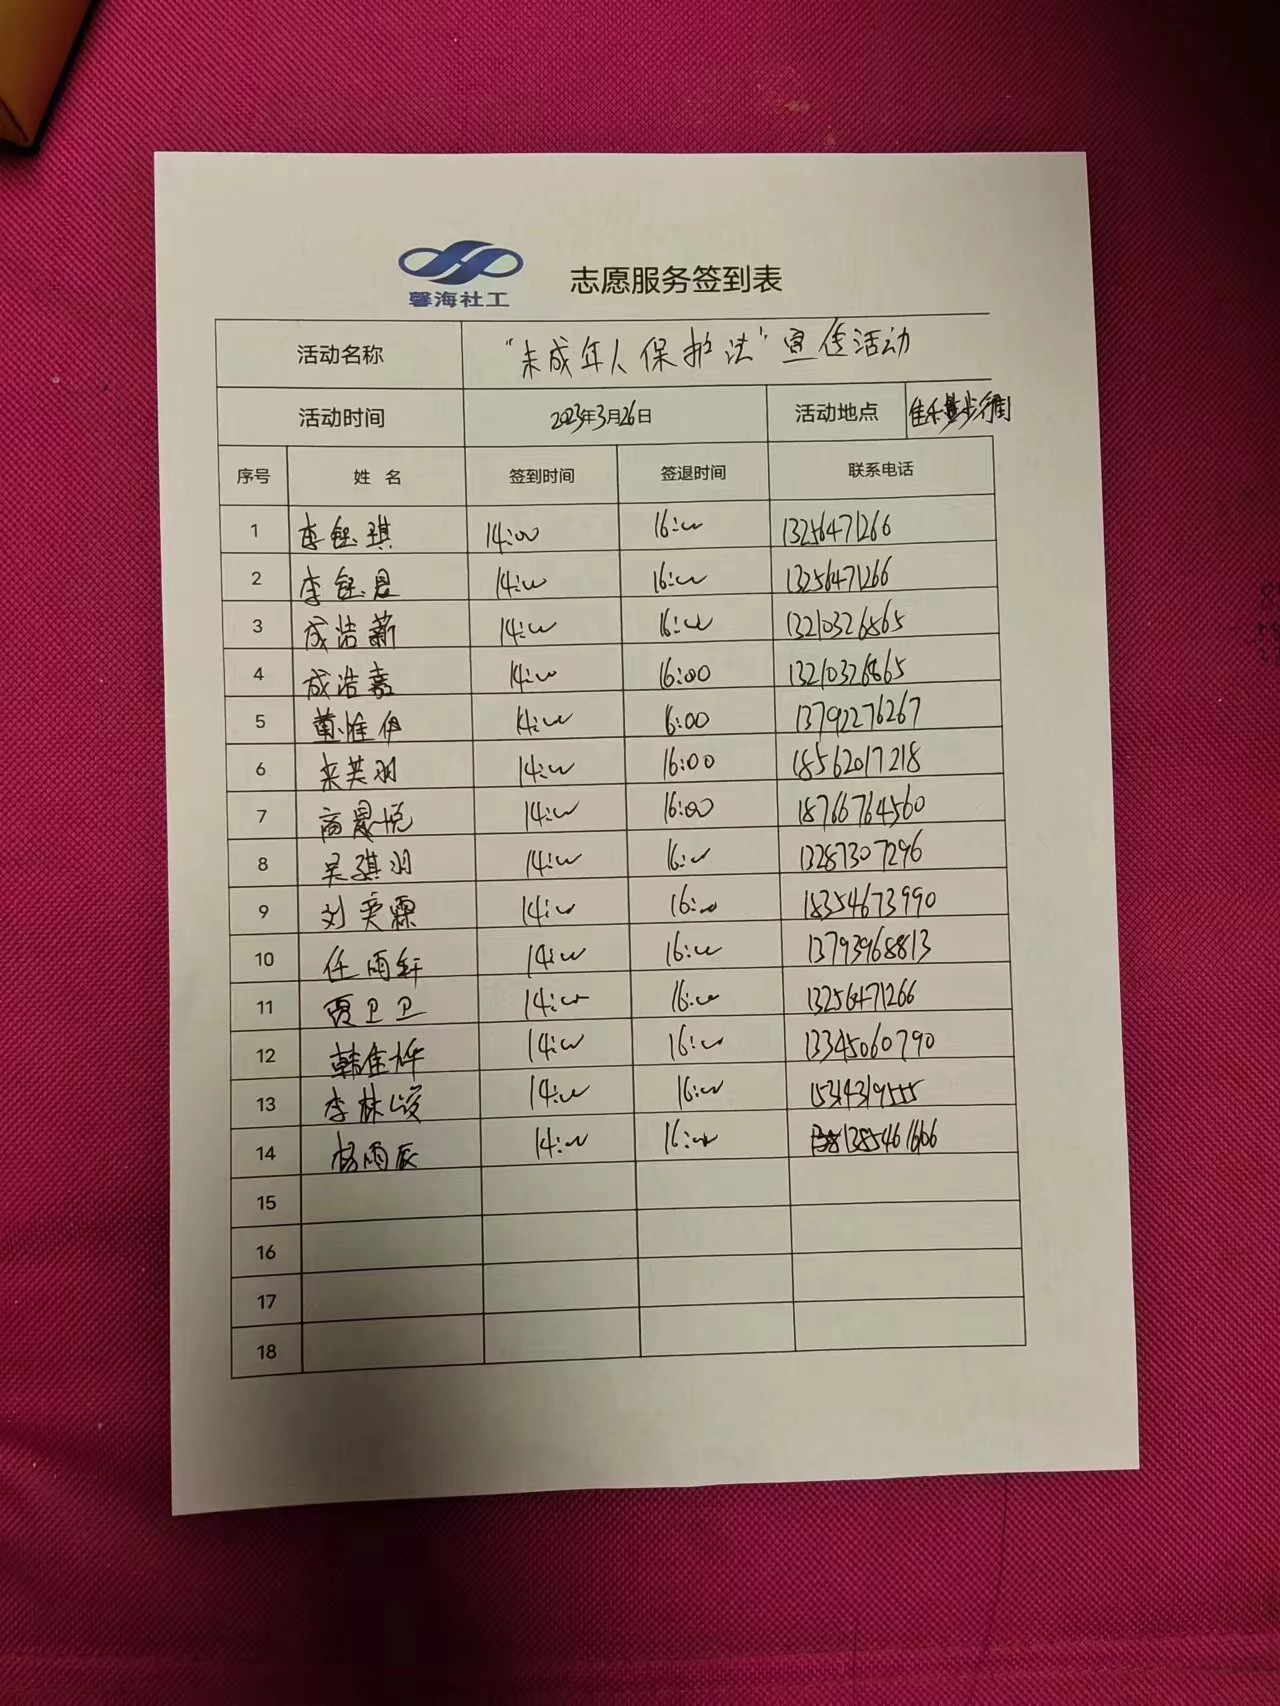 馨海社工
志愿服务签到表
活动名称 “未成年人保护法”宣传活动
活动时间 2023年3月26日 活动地点 佳乐步行街
序号 姓名 签到时间 签退时间 联系电话
1 李钰琪 14:00 16:00 13256471266
2 李钰 14:00 16:00 13256471266
3 成浩薪 14:00 16:00 13210326865
4 成浩嘉 14:00 16:00 13210326865
5 14:00 16:00 13792276267
6 14:00 16:00 18562017218
7 高晨悦 14:00 16:00 18766764560
8 吴琪羽 14:00 16:00 13287307296
9 刘奕霖 14:00 16:00 18354673990
10 任雨轩 14:00 16:00 13793968813
11 贾卫卫 14:00 16:00 13256471266
12 韩佳烨 14:00 16:00 13345060790
13 李林 14:00 16:00 15314319555
14 杨雨辰 14:00 16:00
15
16
17
18